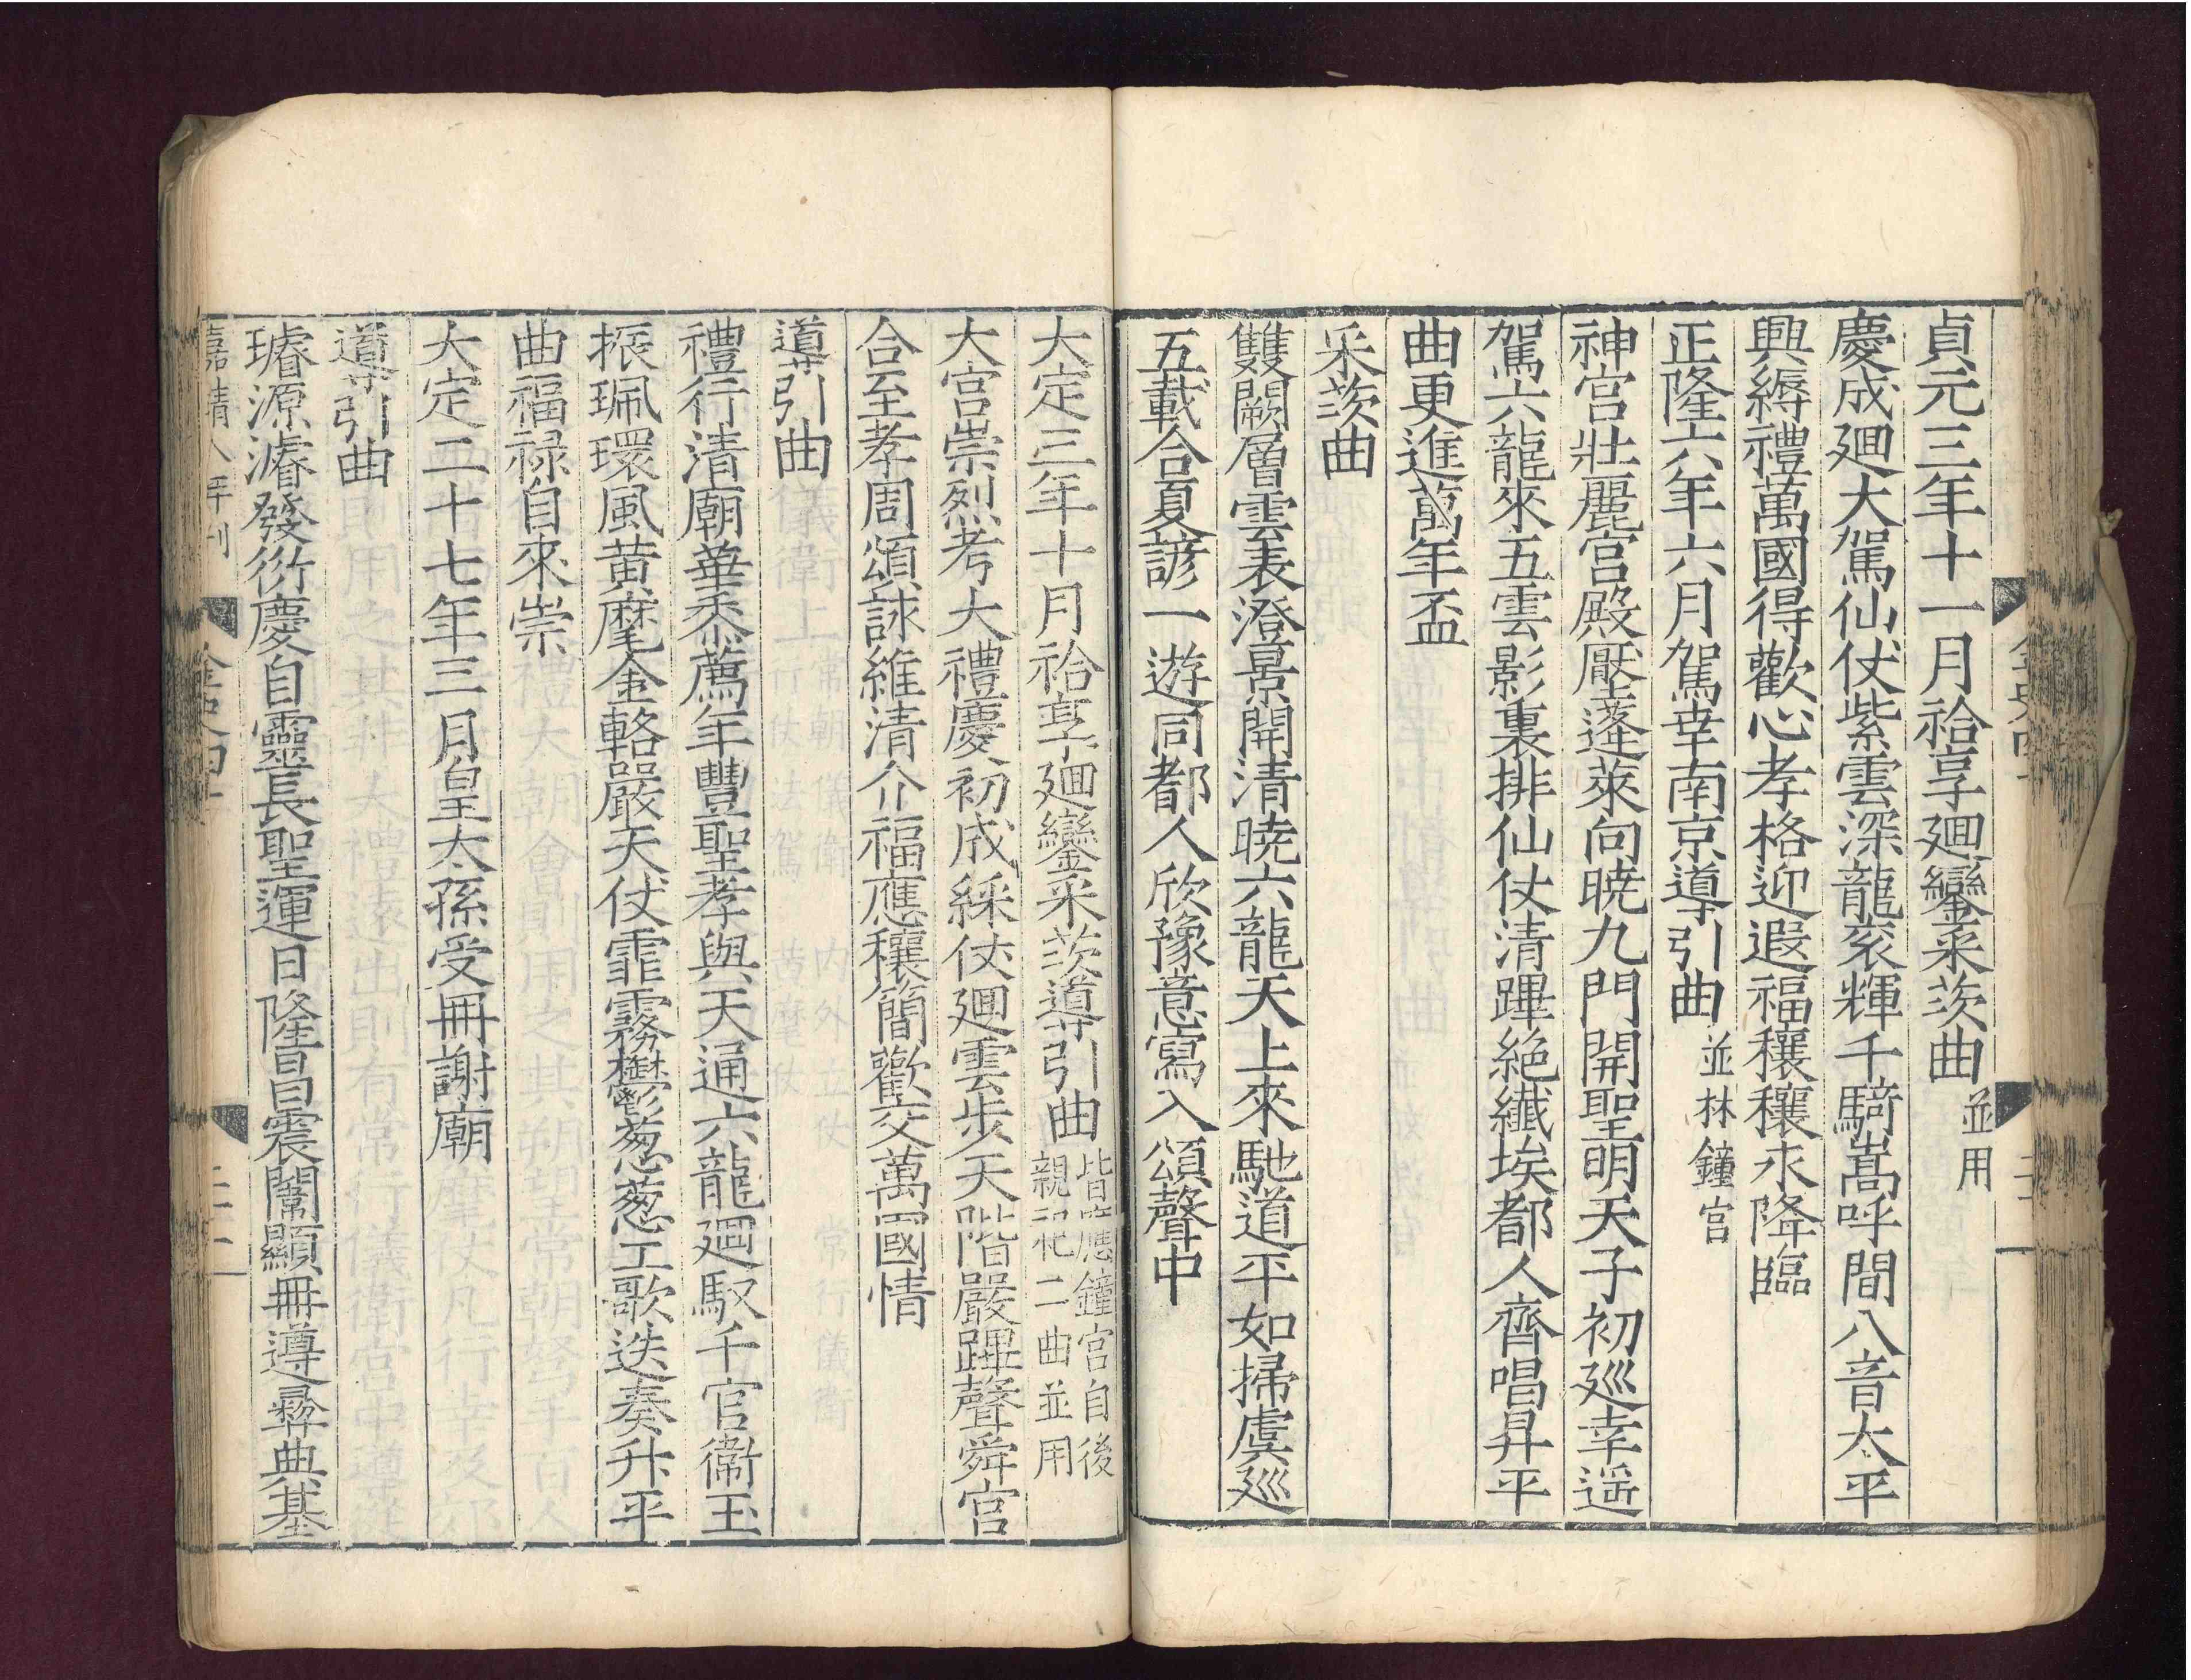 貞元三年十一月祫享廻鑾采茨曲並用
慶成廻大駕仙仗紫雲深龍衮輝千騎嵩呼間八音太平
興縟禮萬國得歡心孝格迎遐福穰穰永降臨
正隆六年六月駕幸南京導引曲並林鐘宮
神宮壯麗宮殿壓蓬萊向曉九門開聖明天子初廵幸遥
駕六龍來五雲影裏排仙仗清蹕絶纖埃都人齊唱昇平
曲更進萬年盃
采茨曲
雙闕層雲表澄景開清曉六龍天上來馳道平如掃虞廵
五載合夏諺一遊同都人欣豫意寫入頌聲中
大定三年十月祫享廻鑾采茨導引曲皆應鐘宮自後
親祀二曲並用
大宮崇烈考大禮慶初成綵仗廻雲步天階嚴蹕聲舜宮
合至孝周頌詠維清介福應穰簡歡交萬國情
導引曲
禮行清廟華黍薦年豐聖孝與天通六龍廻馭千官衛玉
振珮環風黄麾金輅嚴天仗霏霧欝葱葱工歌迭奏升平
曲福禄自來崇
大定二十七年三月皇太孫受冊謝廟
導引曲
璿源濬發衍慶自靈長聖運日隆昌震闈顯冊遵彛典基
嘉靖八年刊
金史四十